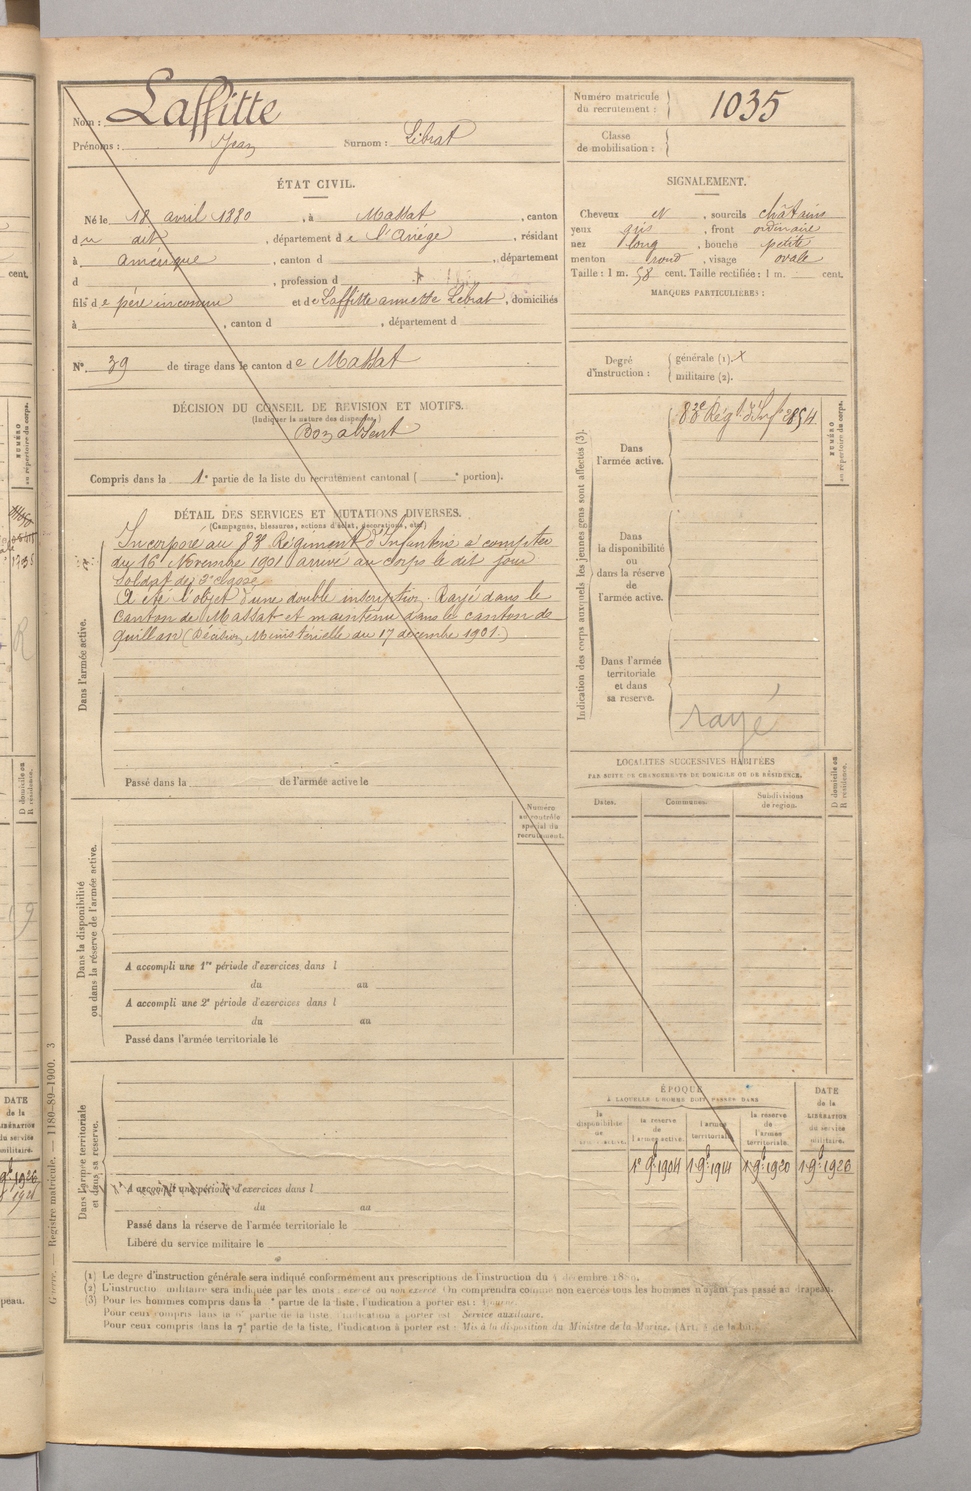 Nom : Laffitte
Prénoms : Jean Surnom : Librat
ÉTAT CIVIL.
Né le 18 avril 1880, à Massat, canton
du dit, département de l'Ariège, résidant
à amérique, canton d , département
d , profession d
fils de père inconnu et de Laffitte annette Librat, domiciliés
à , canton d , département d
N° 39 de tirage dans le canton de Massat
DÉCISION DU CONSEIL DE REVISION ET MOTIFS.
(Indiquer la nature des dispenses.)
Bon absent
Compris dans la 1e partie de la liste du recrutement cantonal ( e portion).
DÉTAIL DES SERVICES ET MUTATIONS DIVERSES.
(Campagnes, blessures, actions d'éclat, décorations, etc.)
Dans l'armée active.
Incorporé au 83e Régiment d'Infanterie à compter
du 16 Novembre 1901 arrivé au corps le dit jour
Soldat de 2e classe
A été l'objet d'une double inscription. Rayé dans le
canton de Massat et maintenu dans le canton de
Quillan (Décision Ministérielle du 17 décembre 1901.)
Passé dans la de l'armée active le
Numéro
au contrôle
spécial du
recrutement.
Dans la disponibilité
ou dans la réserve de l'armée active.
A accompli une 1re période d'exercices dans l
du au
A accompli une 2e période d'exercices dans l
du au
Passé dans l'armée territoriale le
Dans l'armée territoriale
et dans sa reserve.
A accompli une période d'exercices dans l
du au
Passé dans la réserve de l'armée territoriale le
Libéré du service militaire le
Numéro matricule
du recrutement : 1035
Classe
de mobilisation :
SIGNALEMENT.
Cheveux et, sourcils châtains
yeux gris, front ordinaire
nez long, bouche petite
menton rond, visage ovale
Taille : 1 m. 58 cent. Taille rectifiée : 1 m. cent.
MARQUES PARTICULIÈRES :
Degré
d'instruction :
générale (1).
militaire (2).
Indication des corps auxquels les jeunes gens sont affectés (3).
NUMÉRO
au répertoire du corps.
Dans
l'armée active.
83e Régt d'Inf. 2854
Dans
la disponibilité
ou
dans la réserve
de
l'armée active.
Dans l'armée
territoriale
et dans
sa reserve.
rayé
LOCALITÉS SUCCESSIVES HABITÉES
PAR SUITE DE CHANGEMENTS DE DOMICILE OU DE RÉSIDENCE.
D domicile ou
R résidence.
Dates.
Communes.
Subdivisions
de région.
ÉPOQUE
À LAQUELLE L'HOMME DOIT PASSER DANS
la
disponibilité
de
l'armée active.
la réserve
de
l'armée active.
l'armée
territoriale.
la réserve
de
l'armée
territoriale.
DATE
de la
LIBÉRATION
du service
militaire.
1e 9b 1904 1 9b 1914 1 9b 1920 1 9b 1926
Guerre. — Registre matricule. — 1180-89-1900. 3
(1) Le degré d'instruction générale sera indiqué conformément aux prescriptions de l'instruction du 4 décembre 1889.
(2) L'instruction militaire sera indiquée par les mots : exercé ou non exercé. On comprendra comme non exercés tous les hommes n'ayant pas passé au drapeau.
(3) Pour les hommes compris dans la partie de la liste, l'indication à porter est :
Pour ceux compris dans la 6e partie de la liste, l'indication à porter est : Service auxiliaire.
Pour ceux compris dans la 7e partie de la liste, l'indication à porter est : Mis à la disposition du Ministre de la Marine. (Art. 4 de la loi.)
cent.
NUMÉRO
au répertoire du corps.
D domicile ou
R résidence.
DATE
de la
LIBÉRATION
du service
militaire.
9b 1926
peau.